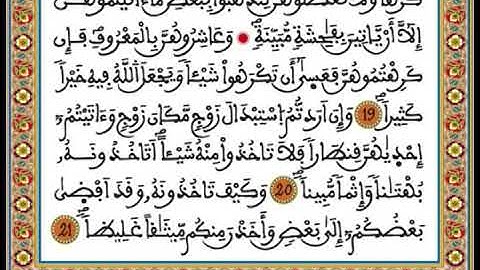 كَرْهاً وَلَا تَعْضُلُوهُنَّ لِتَذْهَبُوا بِبَعْضِ مَا ءَاتَيْتُمُوهُنَّ
إِلَّا أَنْ يَّاتِينَ بِفَٰحِشَةٍ مُّبَيِّنَةٍ وَعَاشِرُوهُنَّ بِالْمَعْرُوفِ فَإِن
كَرِهْتُمُوهُنَّ فَعَسَىٰ أَن تَكْرَهُوا شَيْـٔاً وَيَجْعَلَ اللَّهُ فِيهِ خَيْراً
كَثِيراً 19 وَإِنْ أَرَدتُّمُ اسْتِبْدَالَ زَوْجٍ مَّكَانَ زَوْجٍ وَءَاتَيْتُمْ
إِحْدَىٰهُنَّ قِنطَاراً فَلَا تَاخُذُوا مِنْهُ شَيْـٔاً أَتَاخُذُونَهُ
بُهْتَٰناً وَإِثْماً مُّبِيناً 20 وَكَيْفَ تَاخُذُونَهُ وَقَدْ أَفْضَىٰ
بَعْضُكُمُ إِلَىٰ بَعْضٍ وَأَخَذْنَ مِنكُم مِّيثَٰقاً غَلِيظاً 21